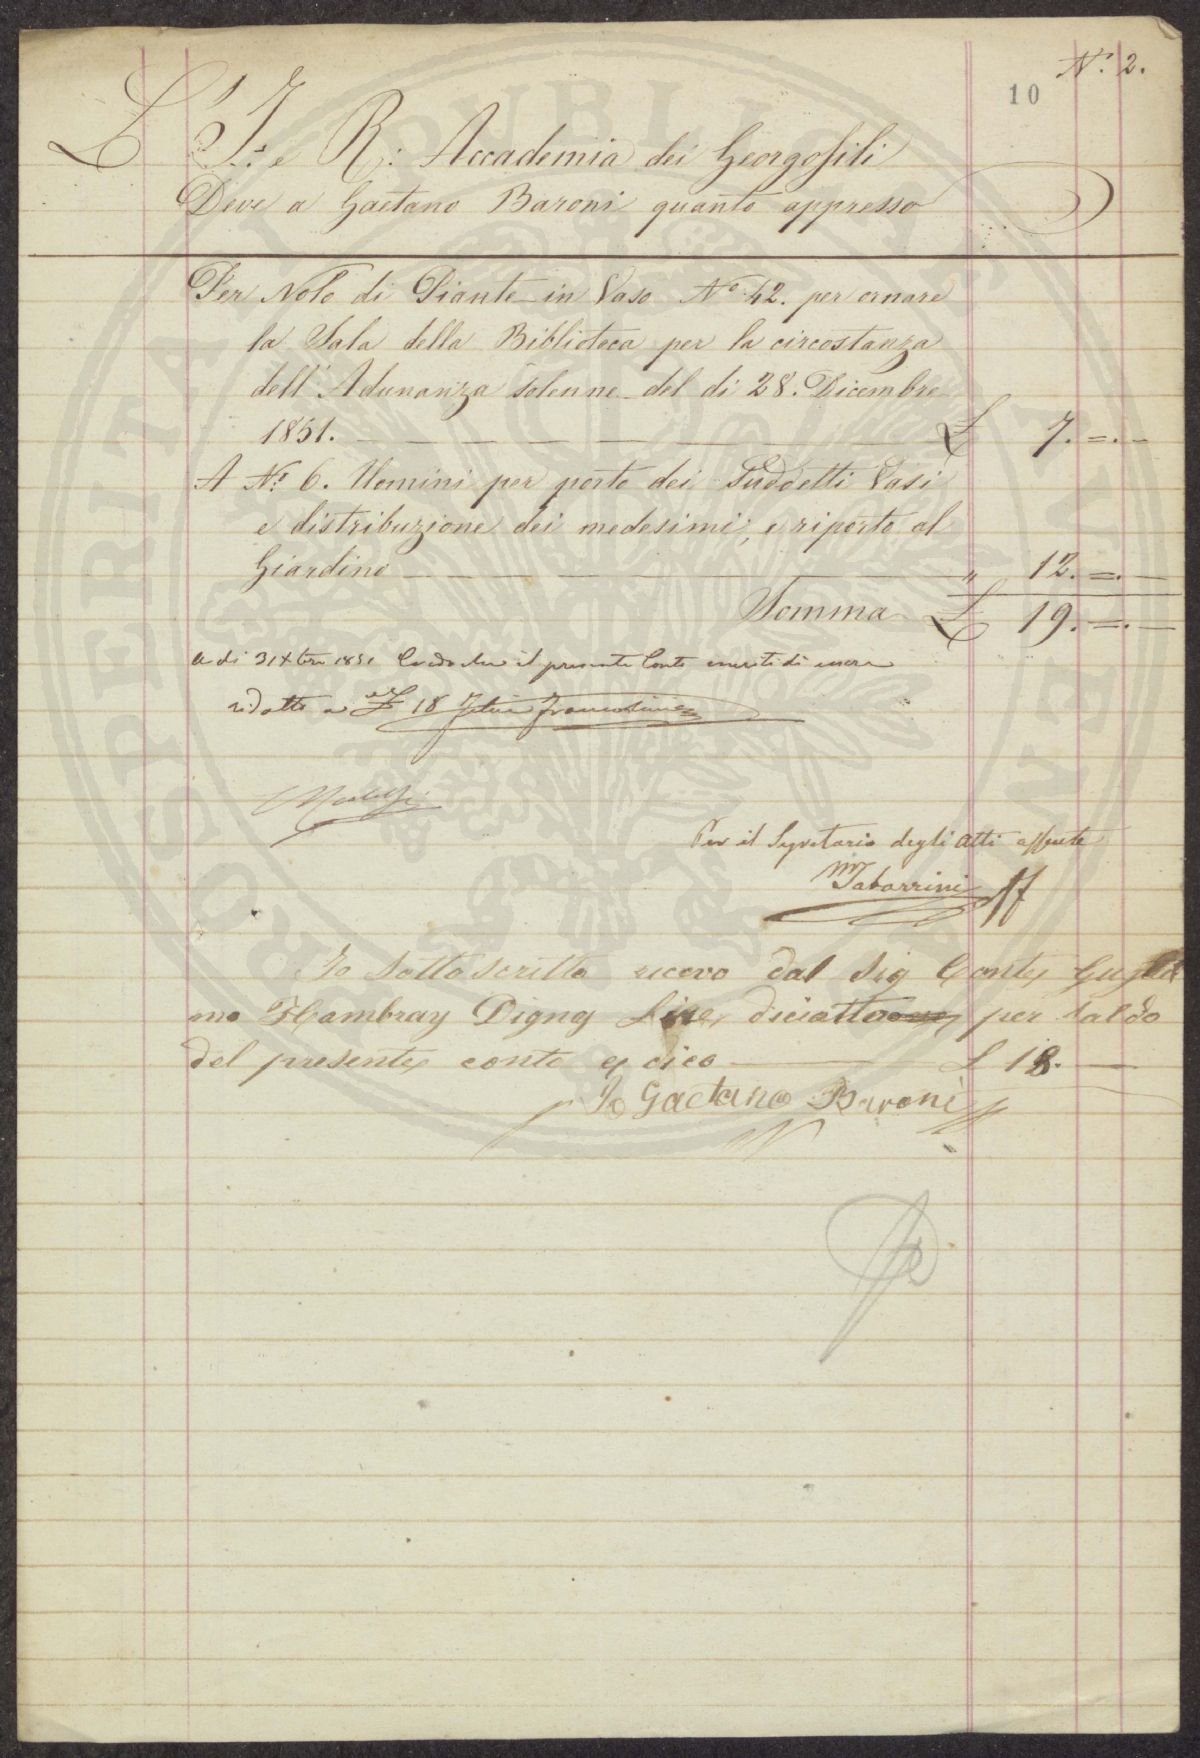 N.º 2.
10
L' I: e R: Accademia dei Georgofili
Deve a Gaetano Baroni quanto appresso
Per Nolo di Piante in Vaso Nº 42. per ornare
la Sala della Biblioteca per la circostanza
dell' Adunanza solenne del di 28. Dicembre
1851. £ 7. =. -
A Nº 6. Uomini per porto dei Suddetti Vasi
e distribuzione dei medesimi, e riporto al
Giardino " 12. =. -
Somma £ 19. =. -
A di 31 Xbre 1851 Credo che il presente Conto meriti di essere
ridotto a £ 18
Per il Segretario degli Atti assente
M Tabarrini
Io Sotto scritto ricevo dal Sig Conte Gugliel
mo
Cambray Digny Lire diciotto per Saldo
del presente conto e dico £ 18. -
Io Gaetano Baroni
PROSPERITATI PUBLICAE AUGENDAE